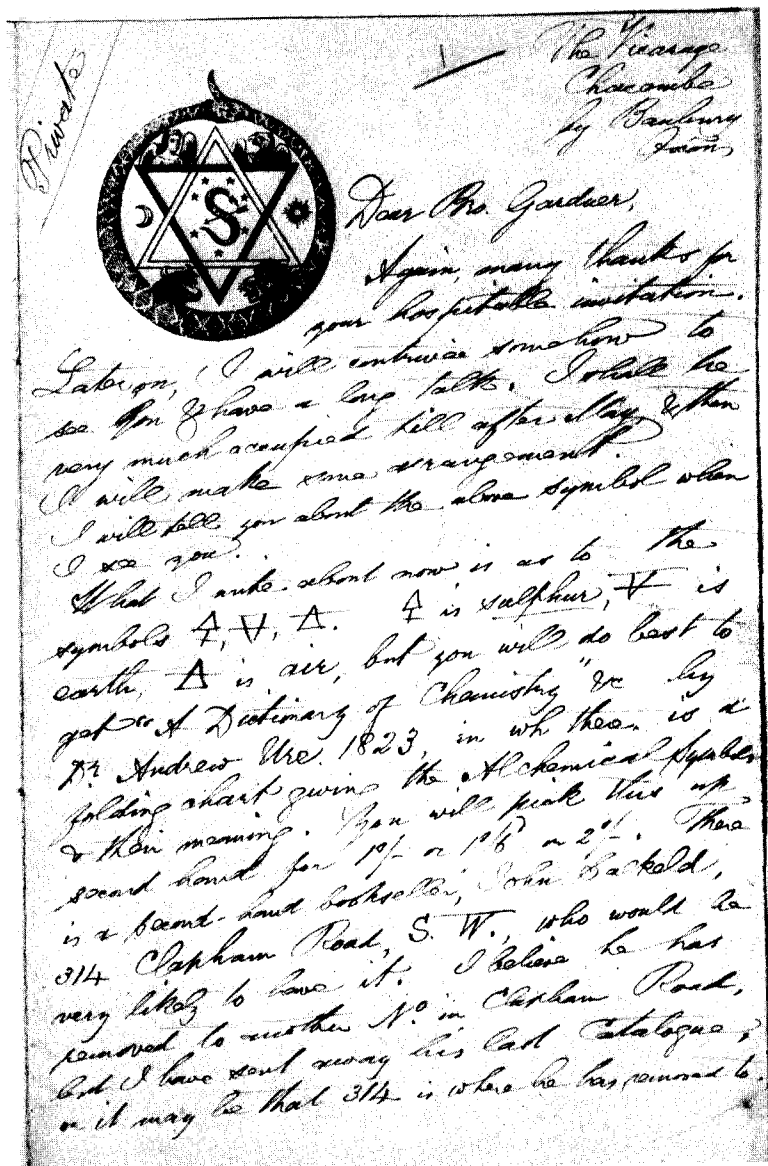 Private
The Vicarage
Chacombe
by Banbury
Oxon,
Dear Bro. Gardner,
Again, many thanks for
your hospitable invitation.
Later on, I will contrive somehow to
see you & have a long talk. I shall be
very much occupied till after May, & then
I will make some arrangement.
I will tell you about the above symbol when
I see you.
What I write about now is as to the
symbols 🜍, 🜃, 🜁. 🜍 is sulphur, 🜃 is
earth, 🜁 is air, but you will do best to
get "A Dictionary of Chemistry" &c by
Dr. Andrew Ure. 1823, in wh there is a
folding chart giving the Alchemical Symbols
& their meaning. You will pick this up
second hand for 1/- or 1/6 or 2/-. There
is a second-hand bookseller, John
314 Clapham Road, S. W., who would be
very likely to have it. I believe he has
removed to another No. in Clapham Road,
but I have sent away his last Catalogue,
or it may be that 314 is where he has removed to.